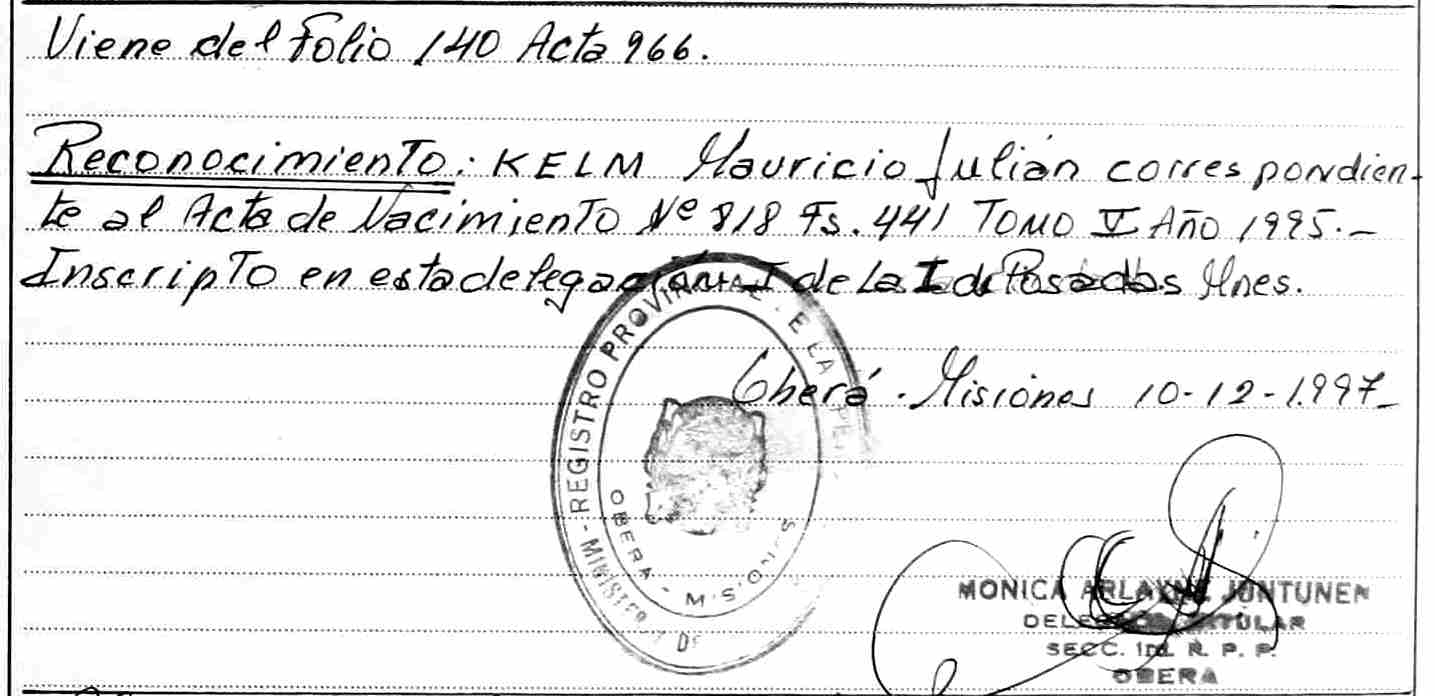 Viene del Folio 140 Acta 966.
Reconocimiento: KELM Mauricio Julián correspondien-
te al Acta de Nacimiento Nº 818 Fs. 441 TOMO V Año 1995.-
Inscripto en esta delegación I de La I de Posadas Mnes.
Oberá - Misiones 10-12-1997-
- REGISTRO PROVINCIAL DE LA
MINISTERI DE
OBERA - MISIONES
MONICA ARLAYNE JUNTUNEN
TITULAR
SECC. 1ra. R. P. P.
OBERA